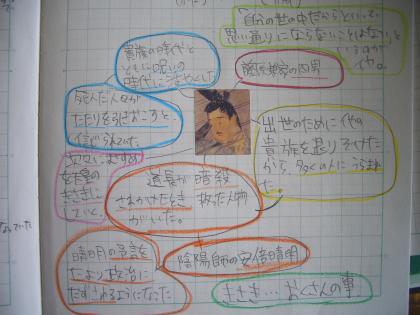 「自分の世の中だからといって
思い通りにならないことはないと
いうのが
イヤ。
貴族の時代と
ともに呪いの
時代に
藤原兼家の四男
死んだ人々が
たたりを引きおこすと
信じられていた。
出世のために他の
貴族を追い
から、多くの人にうらまれ
た。
次々にむすめ
を天皇の
きさきに
していく。
道長が暗殺
されかけたとき 救った人物
がいた。
陰陽師の安倍晴明
晴明の言葉を
たより政治に
だすかれるようになった
きさき…おくさんの事